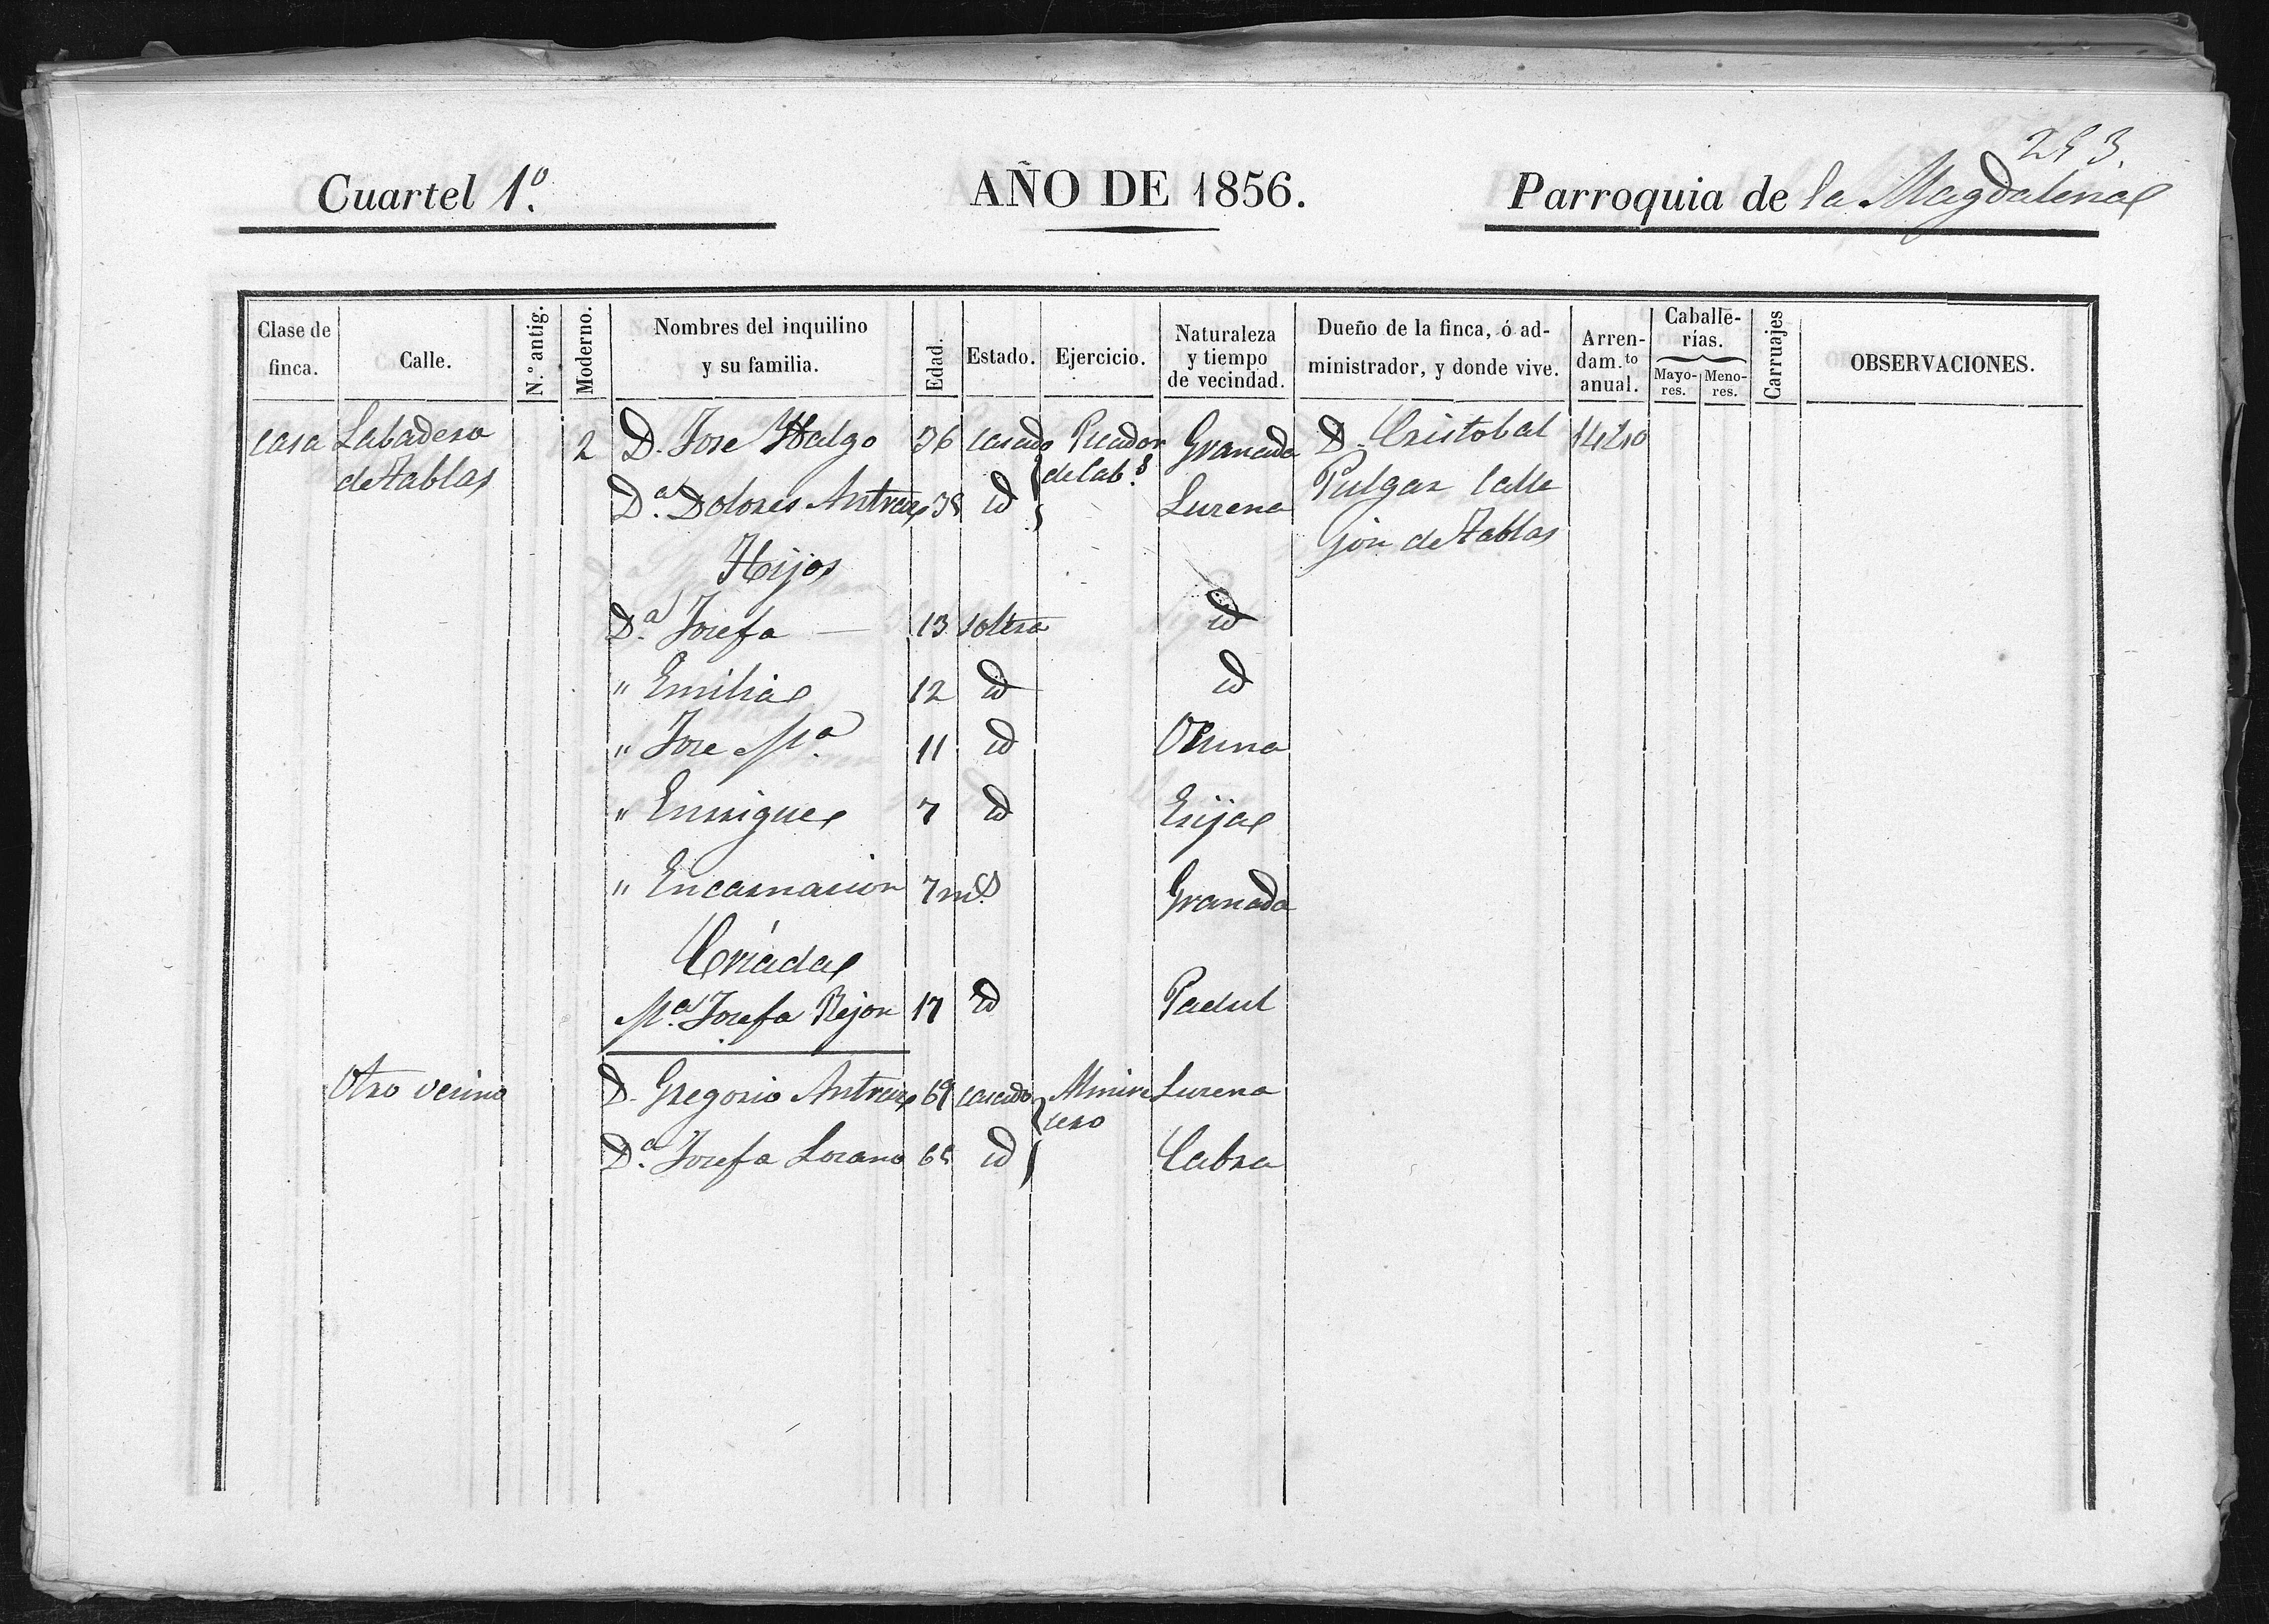 253.
Cuartel 1º. AÑO DE 1856. Parroquia de la Magdalena
Clase de finca. Calle. N.º antig. Moderno. Nombres del inquilino y su familia. Edad. Estado. Ejercicio. Naturaleza y tiempo de vecindad. Dueño de la finca, ó administrador, y donde vive. Arren-dam.to anual. Caballe-rías. Mayo-res. Meno-res. Carruajes OBSERVACIONES.
casa Labadero 2 D. Jose Halgo 36 casado Picador Granada D. Cristobal
de tablas de Cab.s Pulgar Calle
D.ª Dolores id Lucena jon de tablas
Hijos
D.ª Josefa — 13 soltera id
" Emilia 12 id id
" Jose M.ª 11 id Osuna
" Enrrique 7 id Esija
" Encarnacion 7 m.s Granada
Criada
M.ª Josefa Rejon 17 id Padul
Otro vecino D. Gregorio 69 casado Lucena
D.ª Josefa Lozano id Cabra